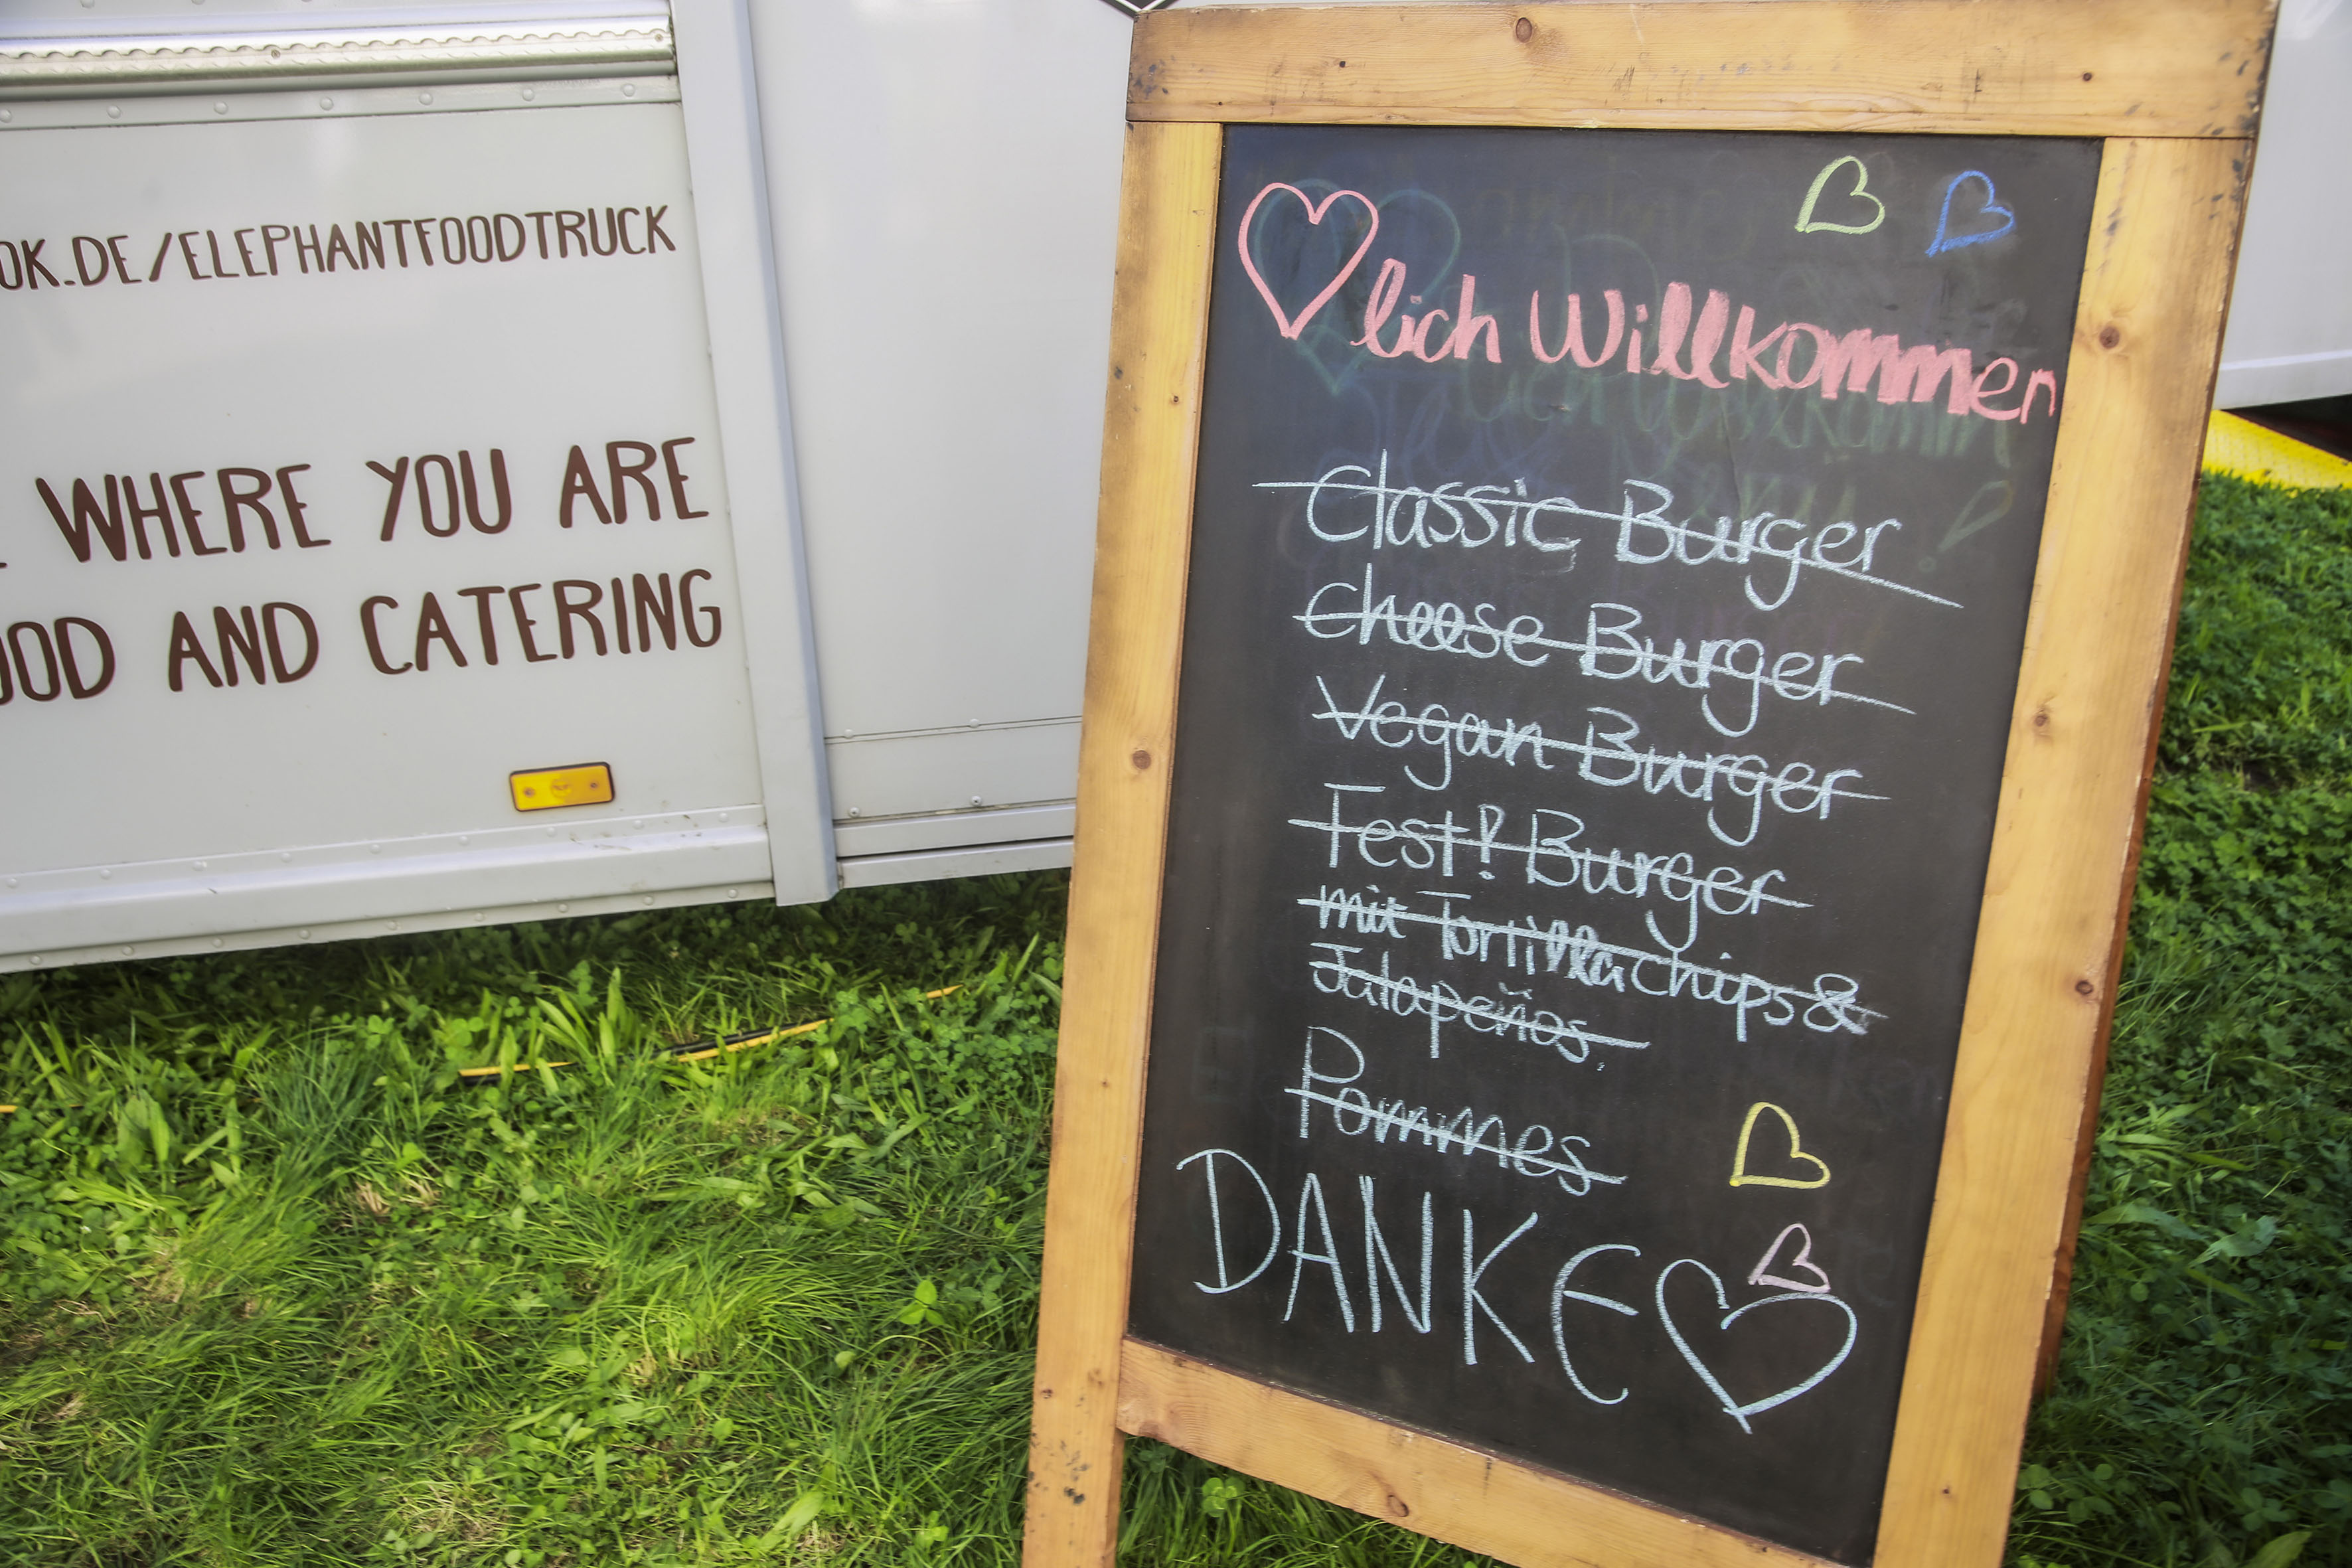 OK.DE/ELEPHANTFOODTRUCK
WHERE YOU ARE
OOD AND CATERING
lich Willkommen
Classic Burger
Cheese Burger
Vegan Burger
Fest! Burger
mit Tortillachips &
Jalapeños.
Pommes
DANKE